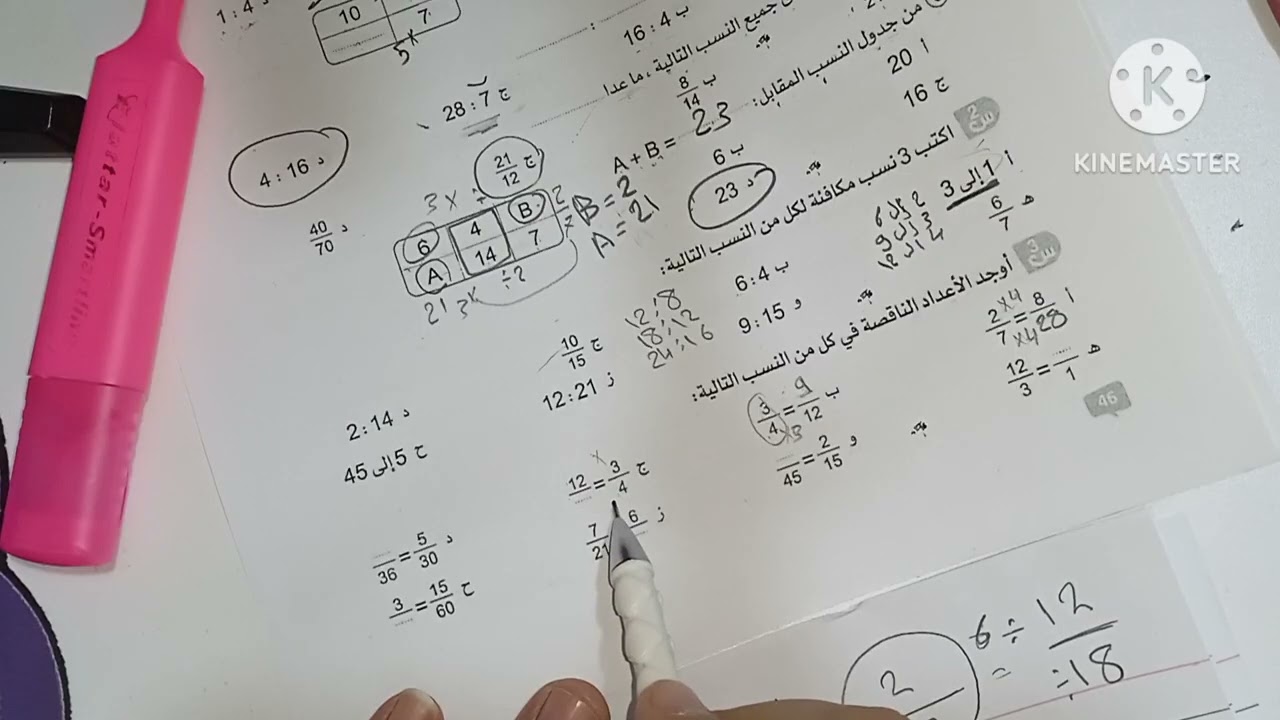 1 : 4 د
10
7
5×
ب 4 : 16
ج 7 : 28
د 16 : 4
جميع النسب التالية ، ما عدا
ب 8/14
ج 21/12
د 40/70
من جدول النسب المقابل:
A + B = 23
أ 20
ب 6
ج 16
د 23
3 × 
6 4 B
A 14 7
21 3× ÷2
B = 2
A = 21
س2 اكتب 3 نسب مكافئة لكل من النسب التالية:
أ 1 إلى 3
2 إلى 6
3 إلى 9
4 إلى 12
ب 6:4
12:8
18:12
24:16
ج 10/15
د 2:14
ه 6/7
و 9:15
ز 12:21
ح 5 إلى 45
س3 أوجد الأعداد الناقصة في كل من النسب التالية:
أ 8/28 = 2/7 ×4 ×4
ب 9/12 = 3/4 ×3
ج 3/4 = 12/......
×
د 5/30 = ....../36
ه ....../1 = 12/3
و 2/15 = ....../45
ز 6/...... 7/21
ح 15/60 = 3/......
46
6 ÷ 12
÷ 18
=
2
K
KINEMASTER